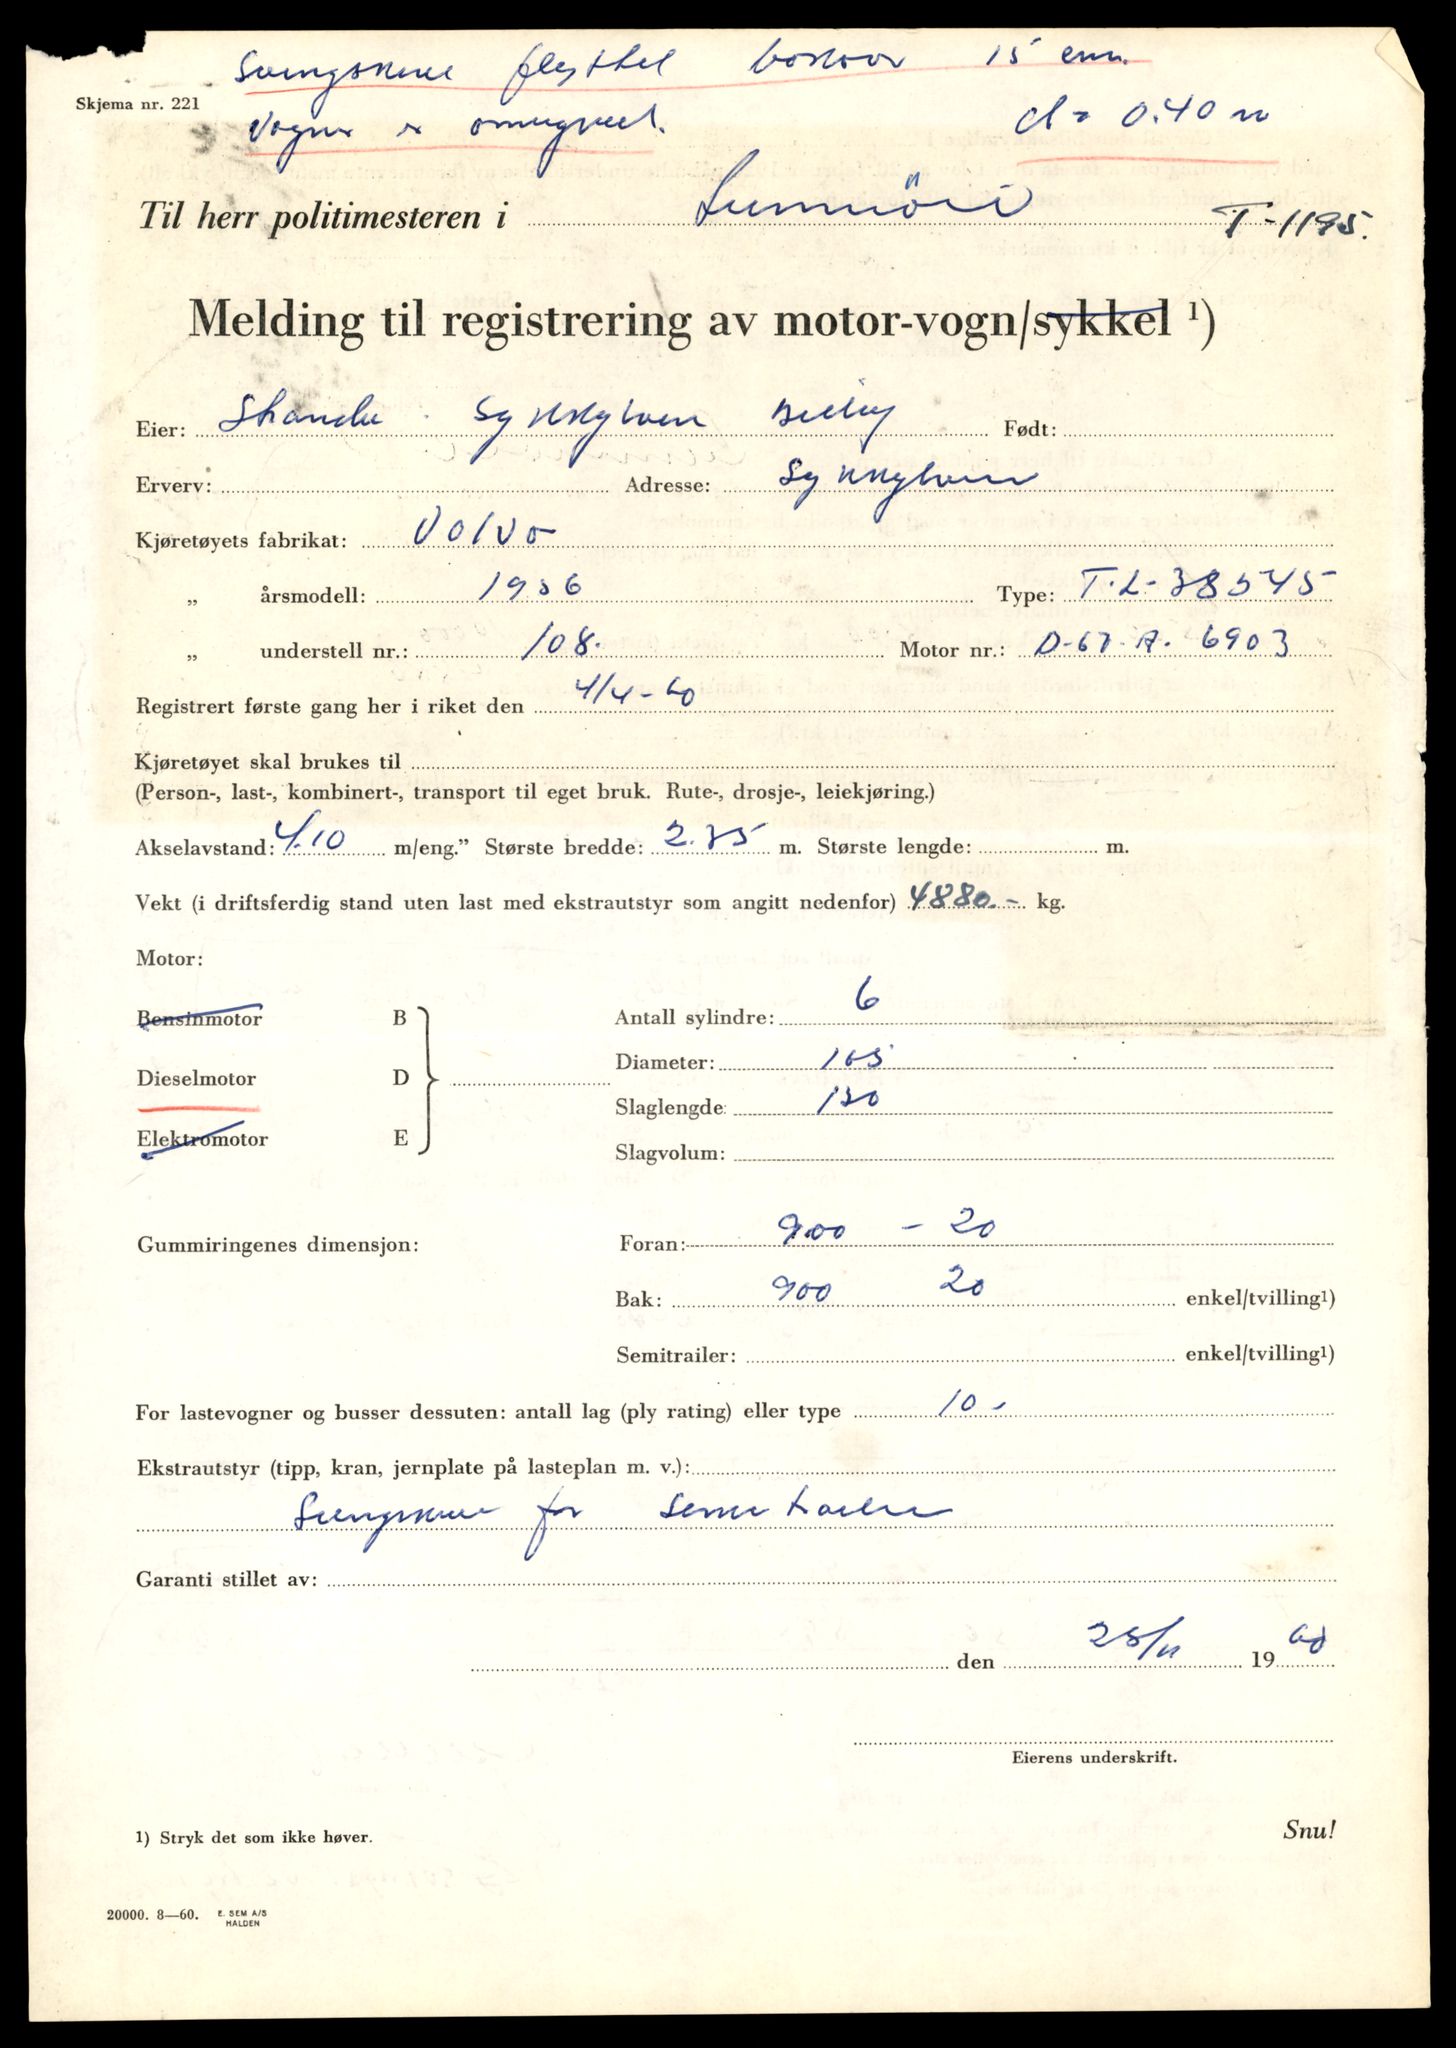 Svingskive flyttet bakover 15 cm.
Skjema nr. 221
Vognen er omveiet. d = 0.40 m
Til herr politimesteren i Sunnmöre T-1195.
Melding til registrering av motor-vogn/sykkel ¹)
Eier: Stranda - Sykkylven Billag Født:
Erverv: Adresse: Sykkylven
Kjøretøyets fabrikat: Volvo
„ årsmodell: 1956 Type: T.L-38545
„ understell nr.: 108. Motor nr.: D-67-A. 6903
Registrert første gang her i riket den 4/4-60
Kjøretøyet skal brukes til
(Person-, last-, kombinert-, transport til eget bruk. Rute-, drosje-, leiekjøring.)
Akselavstand: 4.10 m/eng.” Største bredde: 2.35 m. Største lengde: m.
Vekt (i driftsferdig stand uten last med ekstrautstyr som angitt nedenfor) 4880.- kg.
Motor:
Bensinmotor B Antall sylindre: 6
Diameter: 105
Dieselmotor D
Slaglengde: 130
Elektromotor E
Slagvolum:
Gummiringenes dimensjon: Foran: 900 - 20
Bak: 900 20 enkel/tvilling¹)
Semitrailer: enkel/tvilling¹)
For lastevogner og busser dessuten: antall lag (ply rating) eller type 10-
Ekstrautstyr (tipp, kran, jernplate på lasteplan m. v.):
Svingskive for semitrailer
Garanti stillet av:
den 25/11 1960
Eierens underskrift.
1) Stryk det som ikke høver. Snu!
20000. 8—60. E. SEM A/S
HALDEN